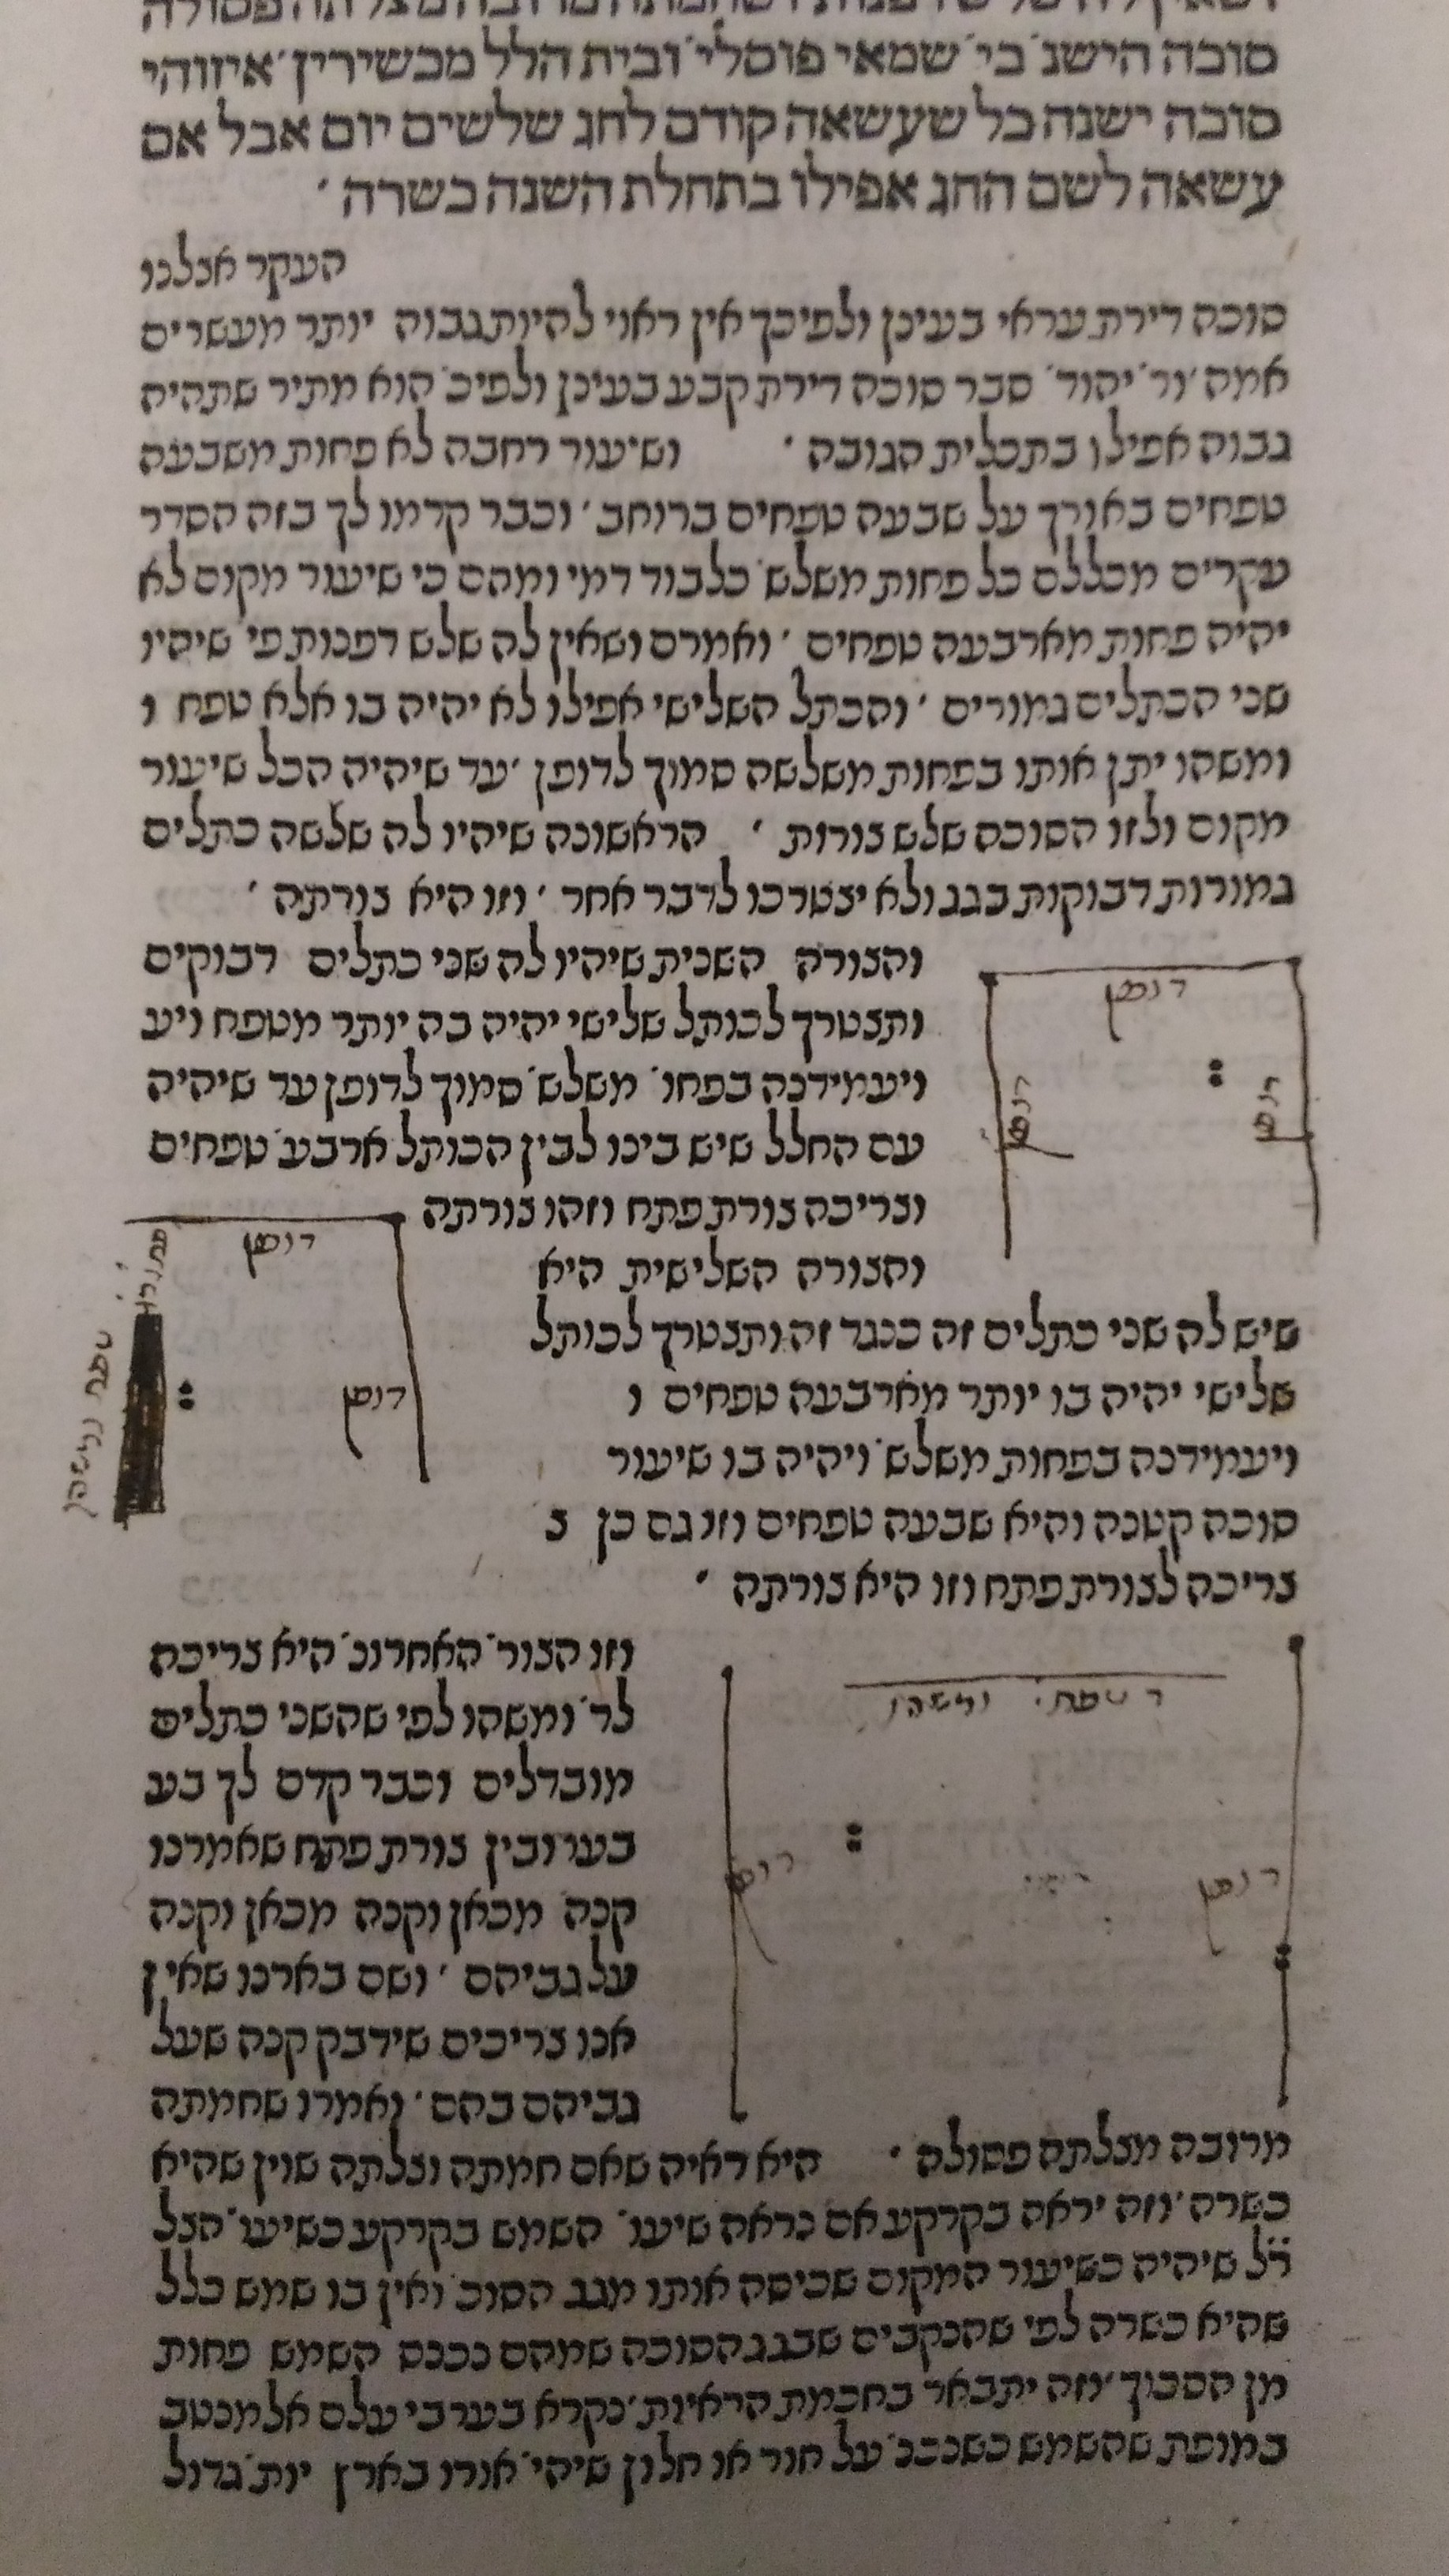 סוכה הישנ' בי' שמאי פוסלי' ובית הלל מכשירין 'איזוהי
סוכה ישנה כל שעשאה קודם לחג שלשים יום אבל אם
עשאה לשם החג אפילו בתחלת השנה כשרה '
העקר אצלנו
סוכה דירת עראי בעינן ולפיכך אין ראוי להיות גבוה יותר מעשרים
אמה 'ור' יהוד' סבר סוכה דירת קבע בעינן ולפיכ' הוא מתיר שתהיה
גבוה אפילו בתכלית הגובה ' ושיעור רחבה לא פחות משבעה
טפחים באורך על שבעה טפחים ברוחב ' וכבר קדמו לך בזה הסדר
עקרים מכללם כל פחות משלש' כלבוד דמי ומהם כי שיעור מקום לא
יהיה פחות מארבעה טפחים ' ואמרם ושאין לה שלש דפנות פי' שיהיו
שני הכתלים גמורים ' והכתל השלישי אפילו לא יהיה בו אלא טפח ו
ומשהו יתן אותו בפחות משלשה סמוך לדופן 'עד שיהיה הכל שיעור
מקום ולזו הסוכה שלש צורות ' הראשונה שיהיו לה שלשה כתלים
גמורות דבוקות בגג ולא יצטרכו לדבר אחר ' וזו היא צורתה '
והצורה השנית שיהיו לה שני כתלים דבוקים
ותצטרך לכותל שלישי יהיה בה יותר מטפח ויע
ויעמידנה בפחו' משלש' סמוך לדופן עד שיהיה
עם החלל שיש בינו לבין הכותל ארבע' טפחים
וצריכה צורת פתח וזהו צורתה
דופן
דופן
דופן
והצורה השלישית היא
שיש לה שני כתלים זה כנגד זה ותצטרך לכותל
שלישי יהיה בו יותר מארבעה טפחים ו
ויעמידנה בפחות משלש' ויהיה בו שיעור
סוכה קטנה והיא שבעה טפחים וזו גם כן צ
צריכה לצורת פתח וזו היא צורתה '
דופן
דופן
טפח ומשהו
וזו הצור' האחרונ' היא צריכה
לד' ומשהו לפי שהשני כתלים
מובדלים וכבר קדם לך בע
בערובין צורת פתח שאמרנו
קנה מכאן וקנה מכאן וקנה
על גביהם ' ושם בארנו שאין
אנו צריכים שידבק קנה שעל
גביהם בהם ' ואמרו שחמתה
ד טפחי' ומשהו
דופן
דופן
מרובה מצלתה פסולה ' היא ראיה שאם חמתה וצלתה שוין שהיא
כשרה 'וזה יראה בקרקע אם נראה שיעו' השמש בקרקע כשיעו' הצל
ר"ל שיהיה כשיעור המקום שכיסה אותו מגב הסוכ' ואין בו שמש כלל
שהיא כשרה לפי שהנקבים שבגג הסוכה שמהם נכנס השמש פחות
מן הסכוך 'וזה יתבאר בחכמת הראיות 'נקרא בערבי עלם אלמנטב
במופת שהשמש כשנכנ' על חור או חלון שיהי' אורו בארץ יות' גדול